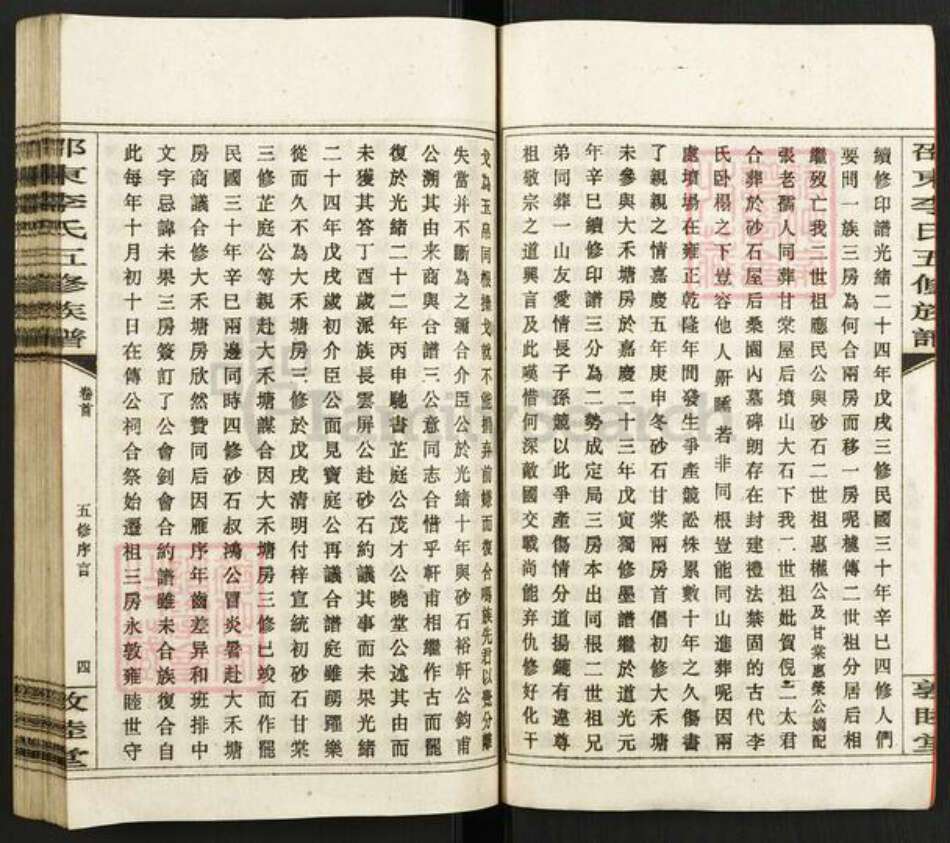 邵東李氏五修族譜
敦睦堂
續修印譜光緒二十四年戊戌三修民國三十年辛巳四修人們
要問一族三房為何合兩房而移一房呢槐傳二世祖分居后相
繼歿亡我二世祖應民公與砂石二世祖惠權公及甘棠惠榮公嫡配
張老孺人同葬甘棠屋后墳山大石下我二世祖妣賀倪二太君
合葬於砂石屋后桑園內墓碑朗存在封建禮法禁固的古代李
氏卧榻之下豈容他人鼾睡若非同根豈能同山進葬呢因兩
處墳塲在雍正乾隆年間發生爭產競訟株累數十年之久傷害
了親親之情嘉慶五年庚申冬砂石甘棠兩房首倡初修大禾塘
未參與大禾塘房於嘉慶二十三年戊寅獨修墨譜繼於道光元
年辛巳續修印譜三分為二勢成定局三房本出同根二世祖兄
弟同葬一山友愛情長子孫競以此爭產傷情分道揚鑣有違尊
祖敬宗之道興言及此嘆惜何深敵國交戰尚能弃仇修好化干
戈為玉帛同根操戈就不能捐弃前嫌而復合嗎族先君以覺分離
失當并不斷為之彌合介臣公於光緒十年與砂石裕軒公鈞甫
公溯其由來商與合譜三公意同志合惜乎軒甫相繼作古而罷
復於光緒二十二年丙申馳書芷庭公茂才公曉堂公述其由而
未獲其答丁酉歲派族長雲屏公赴砂石約議其事而未果光緒
二十四年戊戌歲初介臣公面見寶庭公再議合譜庭雖頗躍樂
從而久不為大禾塘房三修於戊戌清明付梓宣統初砂石甘棠
三修芷庭公等親赴大禾塘謀合因大禾塘房三修已竣而作罷
民國三十年辛巳兩邊同時四修砂石叔鴻公冒炎暑赴大禾塘
房商議合修大禾塘房欣然贊同后因雁序年齒差异和班排中
文字忌諱未果三房簽訂了公會剑會合約譜雖未合族復合自
此每年十月初十日在傳公祠合祭始遷祖三房永敦雍睦世守
邵東李氏五修族譜
卷首
五修序言
四
敦睦堂
FamilySearch